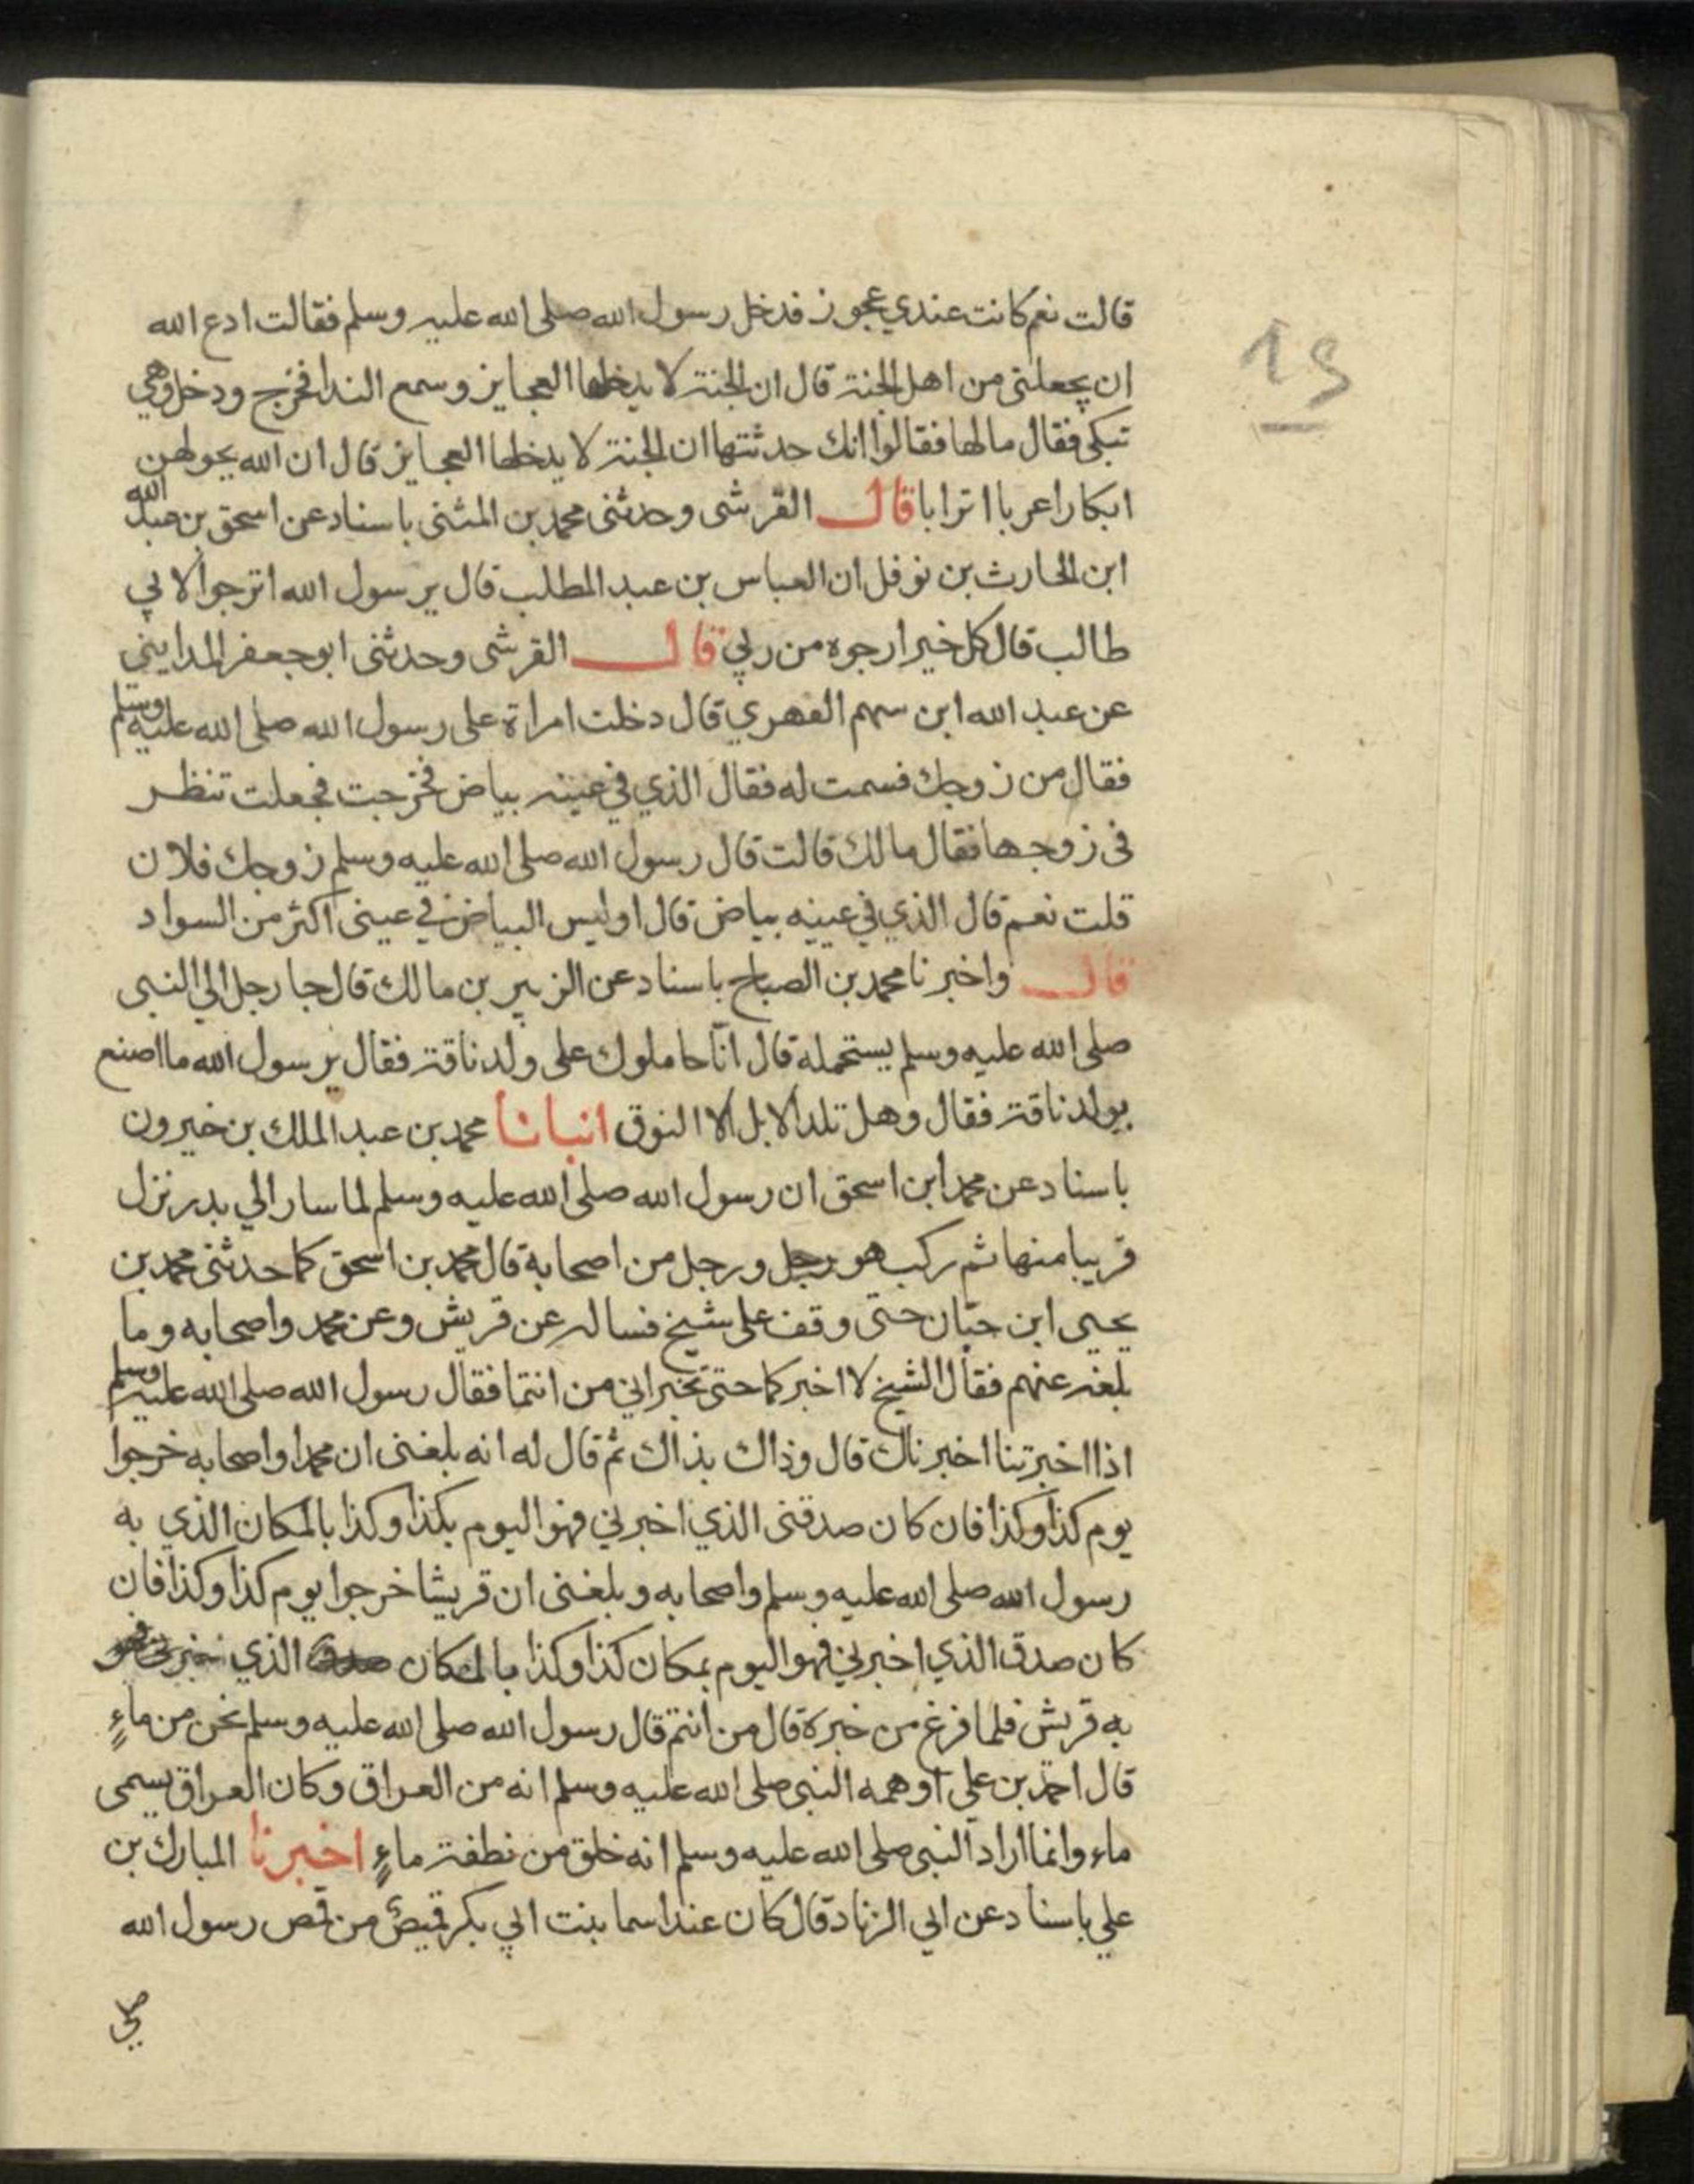 قالت نعم كانت عندي عجوز فدخل رسول الله صلى الله عليه وسلم فقالت ادع الله
ان يجعلني من اهل الجنة قال ان الجنة لا يدخلها العجايز وسمع الندا فخرج ودخل وهي
تبكي فقال ما لها فقالوا انك حدثتها ان الجنة لا يدخلها العجايز قال ان الله يحولهن
ابكارا عربا اترابا قال القرشي وحدثني محمد بن المثنى باسناد عن اسحق بن عبد الله
ابن الحارث بن نوفل ان العباس بن عبد المطلب قال يرسول الله اترجوا لابي
طالب قال كل خير ارجوه من ربي قال القرشي وحدثني ابو جعفر المدايني
عن عبد الله ابن سهم الفهري قال دخلت امراة على رسول الله صلى الله عليه وسلم
فقال من زوجك فسمت له فقال الذي في عينه بياض فخرجت فجعلت تنظر
في زوجها فقال مالك قالت قال رسول الله صلى الله عليه وسلم زوجك فلان
قلت نعم قال الذي في عينيه بياض قال اوليس البياض في عيني اكثر من السواد
قال واخبرنا محمد بن الصباح باسناد عن الزبير بن مالك قال جا رجل الي النبي
صلى الله عليه وسلم يستحمله قال انا حاملوك على ولد ناقة فقال يرسول الله ما اصنع
بولد ناقة فقال وهل تلد الابل الا النوق انبانا محمد بن عبد الملك بن خيرون
باسناد عن محمد ابن اسحق ان رسول الله صلى الله عليه وسلم لما سار الي بدر نزل
قريبا منها ثم ركب هو ورجل من اصحابه قال محمد بن اسحق كما حدثني محمد بن
يحيى ابن حبان حتى وقف على شيخ فساله عن قريش وعن محمد واصحابه وما
بلغه عنهم فقال الشيخ لا اخبركما حتى تخبراني من انتما فقال رسول الله صلى الله عليه وسلم
اذا اخبرتنا اخبرناك قال وذاك بذاك ثم قال له انه بلغني ان محمدا واصحابه خرجوا
يوم كذا وكذا فان كان صدقني الذي اخبرني فهو اليوم بكذا وكذا بالمكان الذي به
رسول الله صلى الله عليه وسلم واصحابه وبلغني ان قريشا خرجوا يوم كذا وكذا فان
كان صدق الذي اخبرني فهو اليوم بمكان كذا وكذا بالمكان الذي
به قريش فلما فرغ من خبره قال من انتم قال رسول الله صلى الله عليه وسلم نحن من ماءٍ
قال احمد بن علي اوهمه النبي صلى الله عليه وسلم انه من العراق وكان العراق يسمى
ماء وانما اراد النبي صلى الله عليه وسلم انه خلق من نطفة ماءٍ اخبرنا المبارك بن
علي باسناد عن ابي الزناد قال كان عند اسما بنت ابي بكر قميص من قمص رسول الله
صلى
19